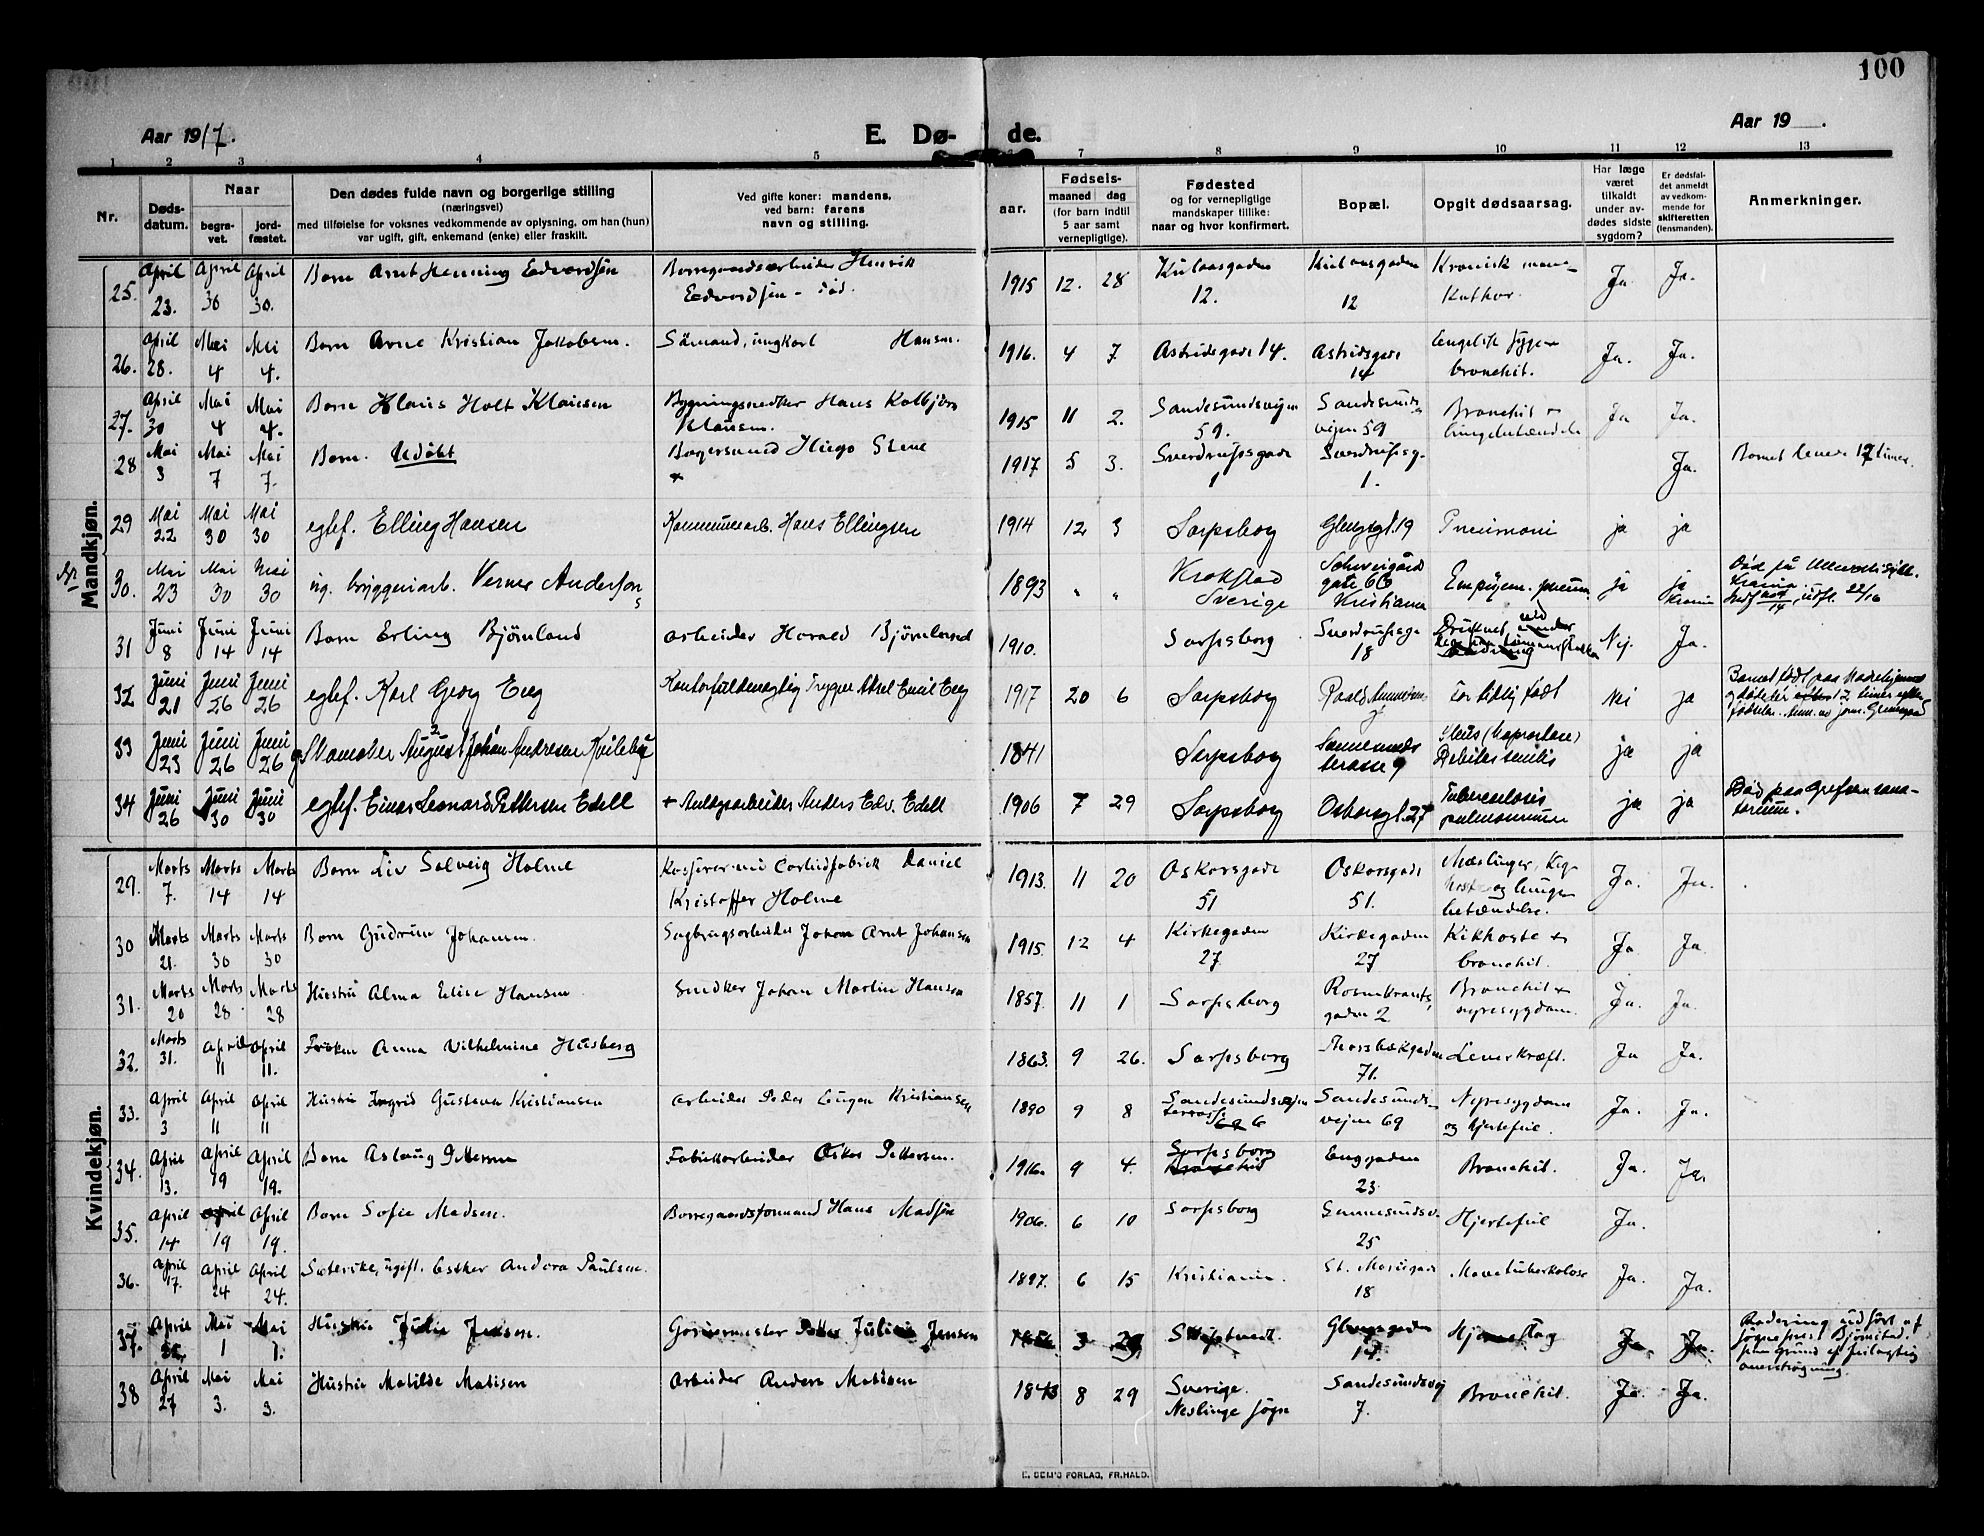 100
Aar 1917.
E. Dø- de.
Aar 19 .
1 2 3 4 5 7 8 9 10 11 12 13
Nr.
Døds-datum.
Naar
begra-vet.
jord-fæstet.
Den dødes fulde navn og borgerlige stilling
(næringsvei)
med tilføielse for voksnes vedkommende av oplysning, om han (hun)
var ugift, gift, enkemand (enke) eller fraskilt.
Ved gifte koner: mandens,
ved barn: farens
navn og stilling.
Fødsels-
aar.
maaned dag
(for barn indtil
5 aar samt
vernepligtige).
Fødested
og for vernepligtige
mandskaper tillike:
naar og hvor konfirmert.
Bopæl.
Opgit dødsaarsag.
Har læge
været
tilkaldt
under av-
dødes sidste
sygdom?
Er dødsfal-
det anmeldt
av vedkom-
mende for
skifteretten
(lensmanden).
Anmerkninger.
Mandkjøn.
25. April 23. April 30 April 30. Barn Arnt Henning Edvardsen Borregaardsarbeider Henrik
Edvardsen - død. 1915 12. 28 Kulaasgaden
12. Kulaasgaden
12 Kronisk mave-
kathar. Ja Ja.
26. April 28. Mai 4 Mai 4. Barn Arne Kristian Jakobsen. Sömand, ungkarl Hansen. 1916. 4 7 Astridsgade 14. Astridsgade
14 Engelsk syge +
bronchit. Ja. Ja.
27. April 30 Mai 4 Mai 4. Barn Klaus Holt Klausen Bygningssnedker Hans Kolbjörn
Klausen. 1915 11 2. Sandesundsvejen
59. Sandesunds-
vejen 59 Bronchit +
lungebetændelse Ja Ja.
28 Mai 3 Mai 7 Mai 7. Barn. Udöbt Bagersvend Hugo Stene
+ 1917 5 3. Sverdrupsgade
1 Sverdrupsg.
1. Ja. Barnet levede 17 timer.
29 Mai 22 Mai 30 Mai 30 egtef. Elling Hansen Kommunearb. Hans Ellingsen 1914 12 3 Sarpsborg Glengsgt. 19 Pneumoni ja ja
30. Mai 23 Mai 30 Mai 30 ug. bryggeriarb. Verner Andersson 1893 " " Krokstad
Sverige Schweigårds
gate 66
Kristiania Empyem. pneum. ja ja
Krania Död på Ullevål sykh.
Krania
22/16
31 Juni 8 Juni 14 Juni 14 Barn Erling Bjørnland Arbeider Harald Bjørnland 1910. Sarpsborg Sverdrupsge
18 Druknet ved Nej. Ja.
32 Juni 21 Juni 26 Juni 26 egtef. Karl Georg Eeg Kontorfuldmegtig Trygve Aksel Emil Eeg 1917 20 6 Sarpsborg Roald Amundsens
g. For tidlig født Nei ja Barnet født paa
12 timer efter
fødselen.
33 Juni 23 Juni 26 Juni 26 g. Skomaker August Johan Andresen Kvileby 1841 Sarpsborg Sannesunds
terasse 9 Ileus (koprostase)
Debilitas senilis ja ja
34 Juni 26 Juni 30 Juni 30 egtef. Einar Leonard Pettersen Edell + Anlegsarbeider Anders Edv. Edell 1906 7 29 Sarpsborg Oskarsgt. 27 Tuberculosis
pulmonum ja ja Død paa Grefsen sana-
torium.
Kvindekjøn.
29. Marts 7. Marts 14 Marts 14 Barn Liv Solveig Holme Kasserer ved Carbidfabrik Daniel
Kristoffer Holme 1913. 11 20 Oskarsgade
51 Oskarsgade
51. Mæslinger, kig-
hoste og lunge-
betændelse. Ja. Ja.
30 Marts 21. Marts 30 Marts 30 Barn Gudrun Johansen. Sagbrugsarbeider Johan Arnt Johansen 1915. 12 4 Kirkegaden
27 Kirkegaden
27 Kikhoste +
bronchit. Ja Ja.
31. Marts 20 Marts 28. Marts 28 Hustru Alma Elise Hansen Snedker Johan Martin Hansen 1857. 11 1 Sarpsborg Rosenkrants
gaden 2. Bronchit +
nyresygdom. Ja. Ja.
32. Marts 31. April 11 April 11. Frøken Anna Vilhelmine Husberg 1863. 9 26. Sarpsborg Thorsbækgaden
71. Leverkræft. Ja Ja.
33. April 3 April 11 April 11 Hustru Ingrid Gustava Kristiansen Arbeider Peder Eugen Kristiansen 1890 9 8 Sandesundsvejen
terrasse 6 Sandesunds-
vejen 69 Nyresygdom
og hjertefeil. Ja. Ja.
34. April 13. April 19 April 19. Barn Aslaug Pettersen Fabrikarbeider Oskar Pettersen. 1916. 9 4. Sarpsborg
Bronchit Enggaden
23 Bronchit. Ja. Ja.
35. April 14 April 19 April 19. Barn Sofie Madsen. Borregaardsformand Hans Madsen 1906. 6 10 Sarpsborg Sannesundsv.
25 Hjertefeil Ja.
36. April 17. April 24 April 24. Sæterske, ugift. Esther Andora Paulsen. 1897. 6 15 Kristiania. St. Mariegade
18 Mavetuberkolose Ja. Ja.
37. April Mai 1 Mai 1. Hustru Julie Jensen. Garvermester Julius Jensen 3 Glengsgaden
17. Hjerneslag Ja. Ja. Radering udført af
sognepres Bjørnstad
paa grund af feilagtig
overstrøgning.
38 April 27 Mai 3. Mai 3. Hustru Matilde Matisen Arbeider Anders Matisen 1843 8 29 Sverige.
Neslinge sogn Sandesundsvej
7. Bronchit. Ja. Ja.
E. SEM'S FORLAG, FR.HALD.